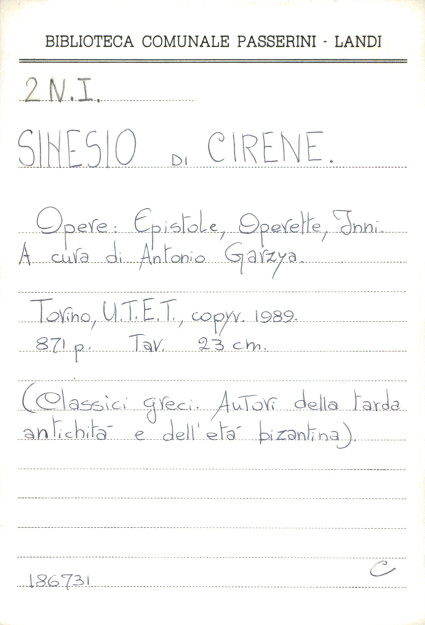 BIBLIOTECA COMUNALE PASSERINI - LANDI
2 N.I.
SINESIO DI CIRENE.
Opere: Epistole, Operette, Inni.
A cura di Antonio Garzya.
Torino, U.T.E.T., copyr. 1989.
871 p. Tav. 23 cm.
(Classici greci. Autori della tarda
antichità e dell'età bizantina).
186731 C